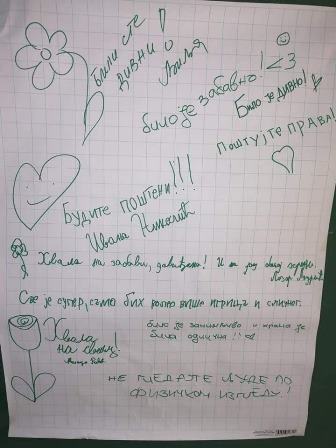 Били сте
дивни
било је забавно! <3
Било је дивно!
Поштујте права!
Будите поштени!!!
Ивана Николић
Хвала на забави, и на
Све је супер, само бих волео више игрица и сличног.
Хвала
на свему!
било је занимљиво и храна је
била одлична!!
НЕ ГЛЕДАЈТЕ ЉУДЕ ПО
ФИЗИЧКОМ ИЗГЛЕДУ!